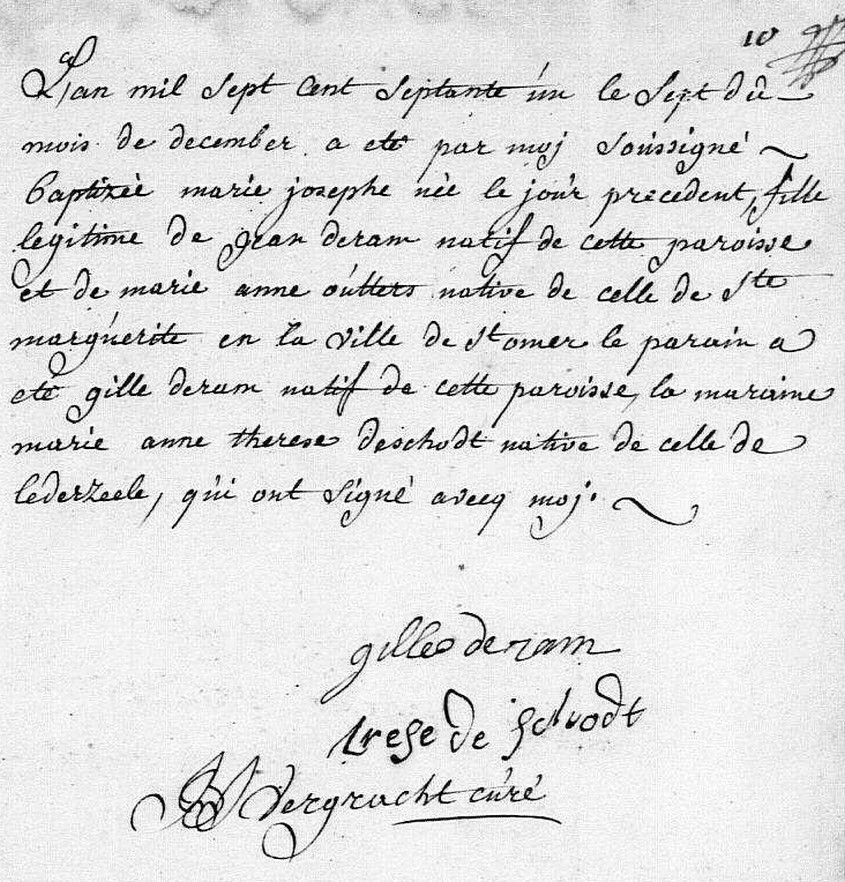 10
L'an mil sept cent septante ún le Sept dú
mois de december a eté par moj soússigné
baptizéé marie josephe néé le joúr precedent, fille
legitime de jean deram natif de cette paroisse
et de marie anne oútters native de celle de Ste
margúerite en la ville de st omer le parain a
eté gille deram natif de cette paroisse, la maraine
marie anne therese deschodt native de celle de
lederzeele, qúi ont signé avecq moj.
gilles deram
trese de schodt
vergracht cúré